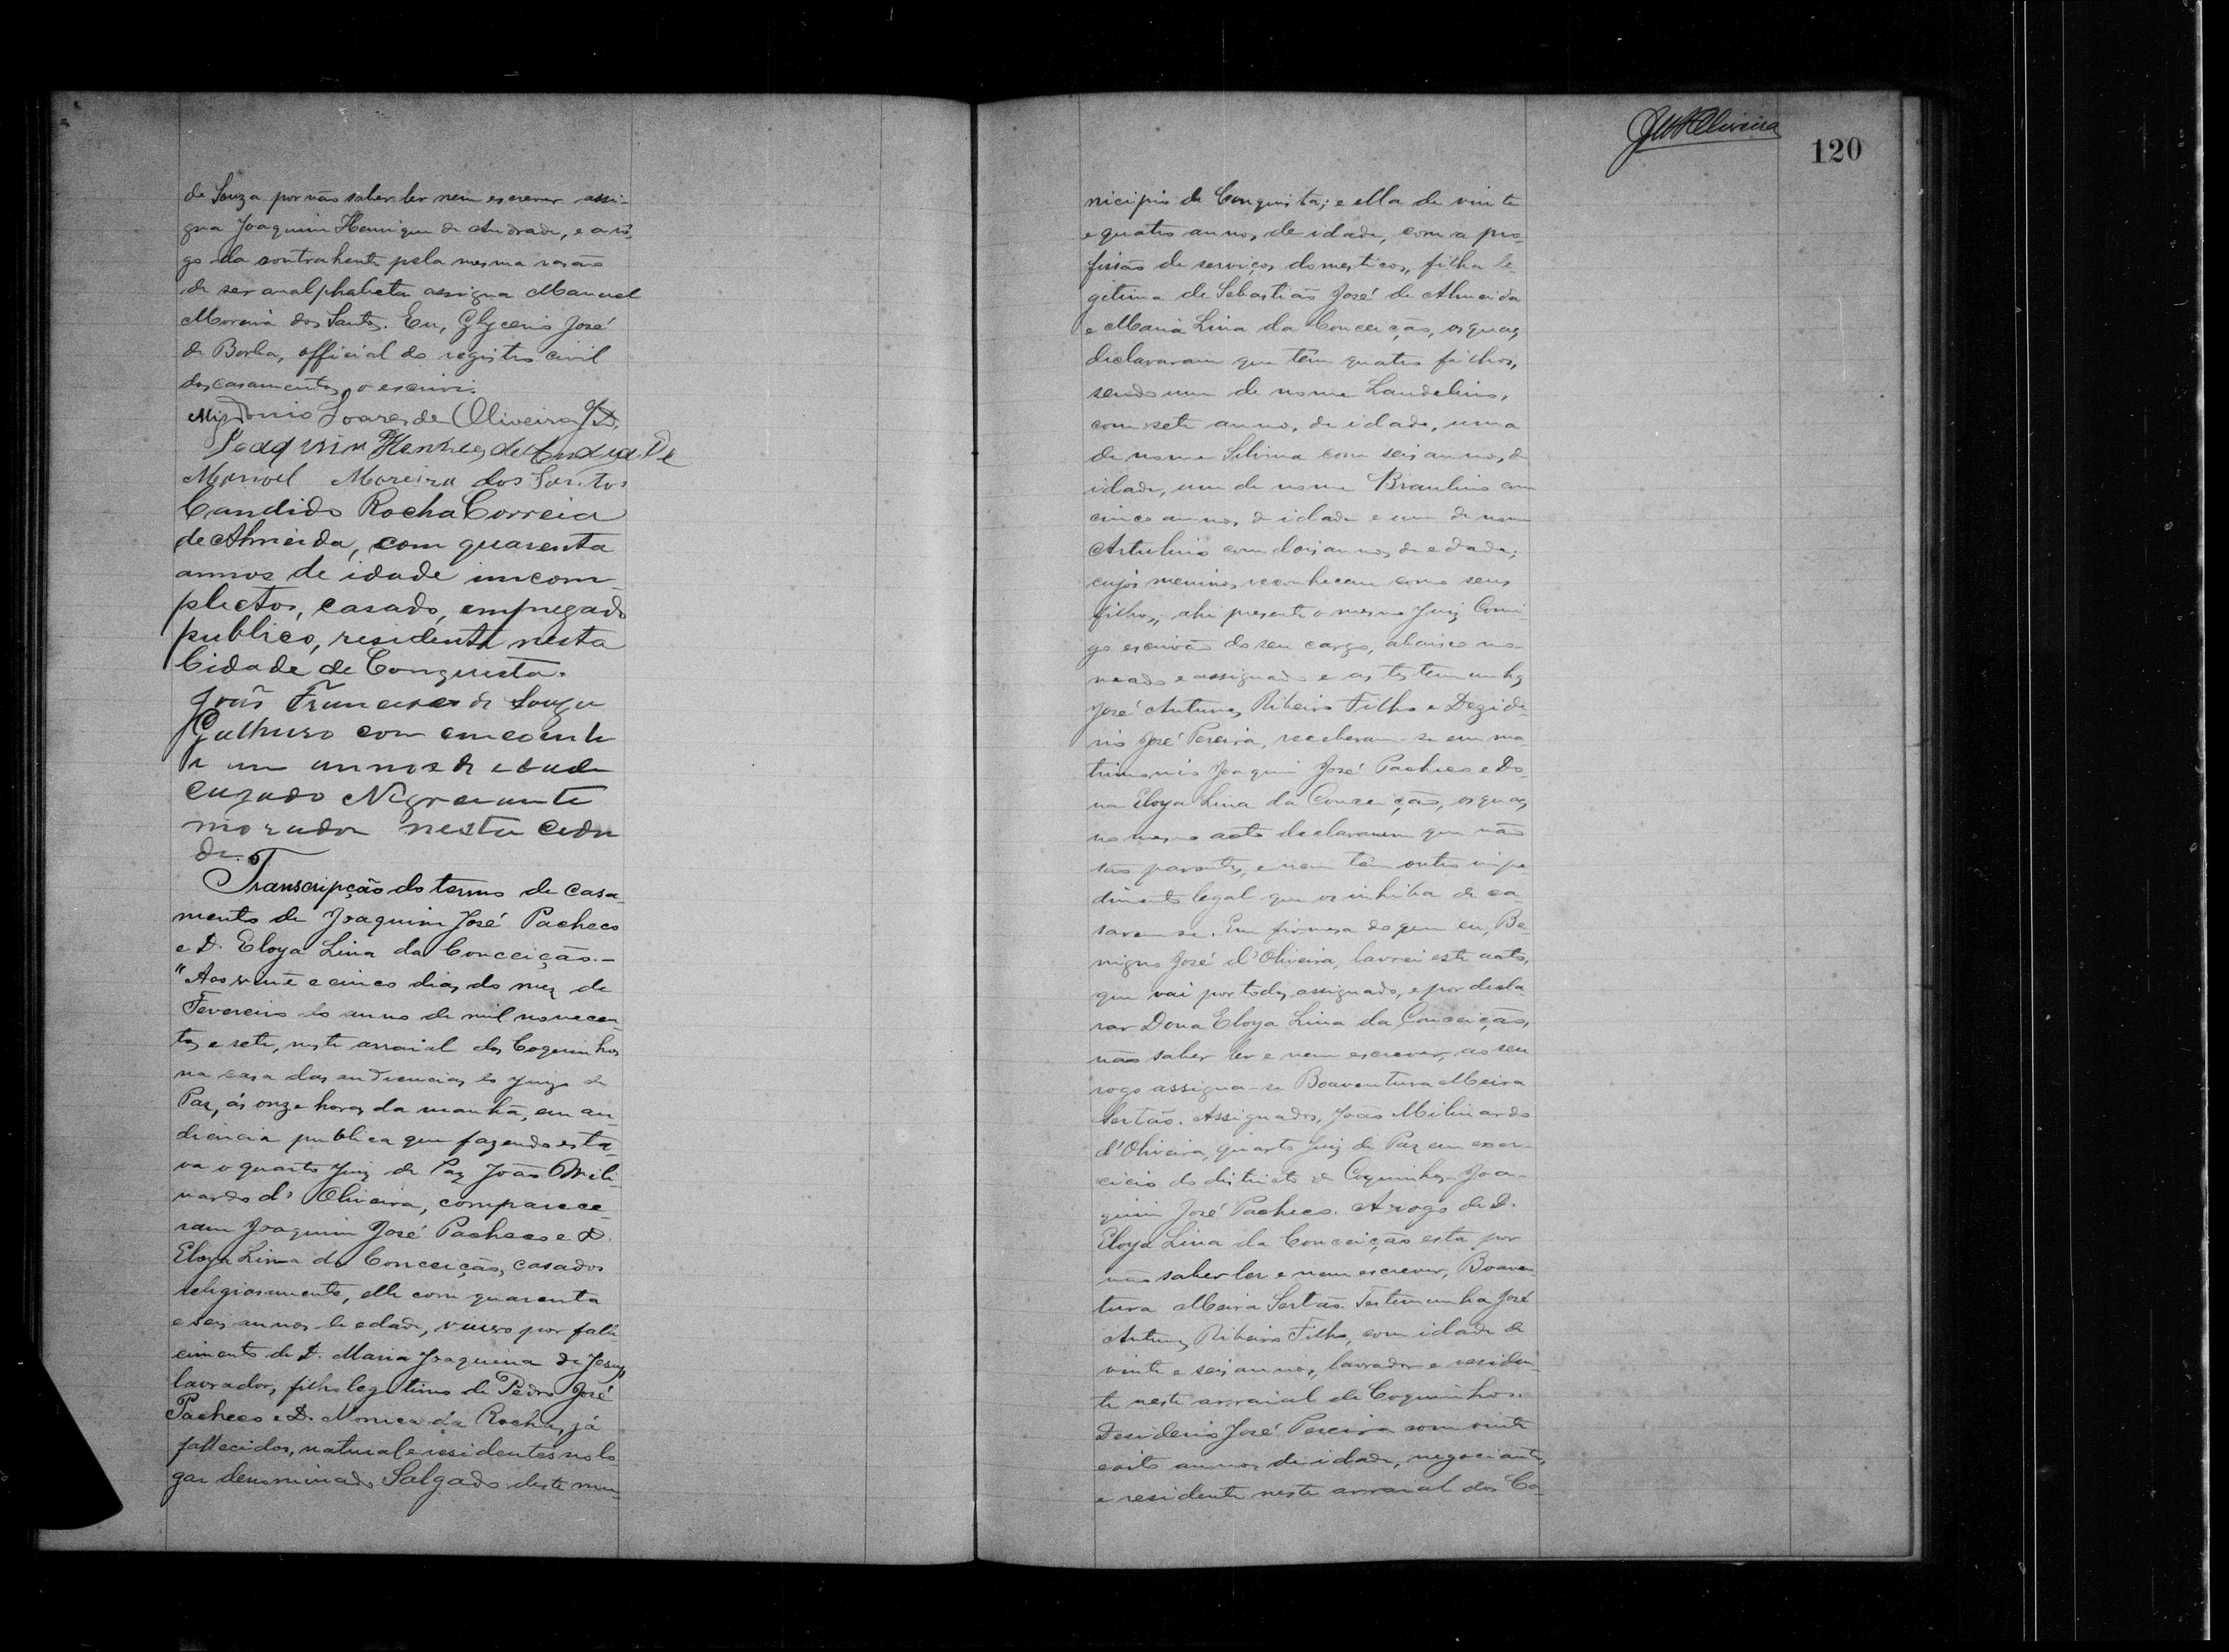 de Souza por não saber ler nem escrever assi-
gna Joaquim Henrique de Andrade, e a ro-
go da contrahente pela mesma rasão
de ser analphabeta assigna Manuel
Moreira dos Santos. Eu, Glycerio José
de Borba, official do registro civil
dos casamentos, o escrivi.
Soares de Oliveira
Joaquim Henriques de Andrade
Manoel Moreira dos Santos
Candido Rocha Correia
de Almeida, com quarenta
annos de idade imcom-
plectos, casado, empregado
publico, residente nesta
Cidade de Conquista.
João Francisco de Souza
com cincoenta
e um annos de edade
cazado Negociante
morador nesta cida
de.
Transcripção do termo de casa-
mento de Joaquim José Pacheco
e D. Eloya Lina da Conceição.—
"Aos vinte e cinco dias do mez de
Fevereiro do anno de mil novecen-
tos e sete, neste arraial dos Coquinhos
na casa das audiencias do Juizo de
Paz, ás onze horas da manhã, em au-
diencia publica que fazendo esta-
va o quarto Juiz de Paz João Mili-
nardo d'Oliveira, comparece-
ram Joaquim José Pacheco e D.
Eloya Lina da Conceição, casados
religiosamente, elle com quarenta
e seis annos de edade, viuvo por falle
cimento de D. Maria Joaquina de Jesus,
lavrador, filho legitimo de Pedro José
Pacheco e D. Monica da Rocha, já
fallecidos, natural e residentes no lo
gar denominado Salgado deste mu-
JMOliveira
120
nicipio de Conquista; e ella de vinte
e quatro annos de idade, com a pro-
fissão de serviços domesticos, filha le-
gitima de Sebastião José de Almeida
e Maria Lina da Conceição, os quaes
declararam que têm quatro filhos,
sendo um de nome Laudelino,
com sete annos de idade, uma
de nome Silvina com seis annos de
idade, um de nome Braulino com
cinco annos de idade e um de nome
com dois annos de edade;
cujos meninos reconhecem como seus
filhos; ahi presente o mesmo Juiz Comi-
go escrivão do seu cargo, abaixo no-
meado e assignado e as testemunhas
José Antunes Ribeiro Filho e Dezide-
rio José Pereira, receberam-se em ma-
trimonio Joaquim José Pacheco e Do-
na Eloya Lina da Conceição, os quaes
no mesmo acto declararam que não
são parentes, e nem têm outro impe-
dimento legal que os inhiba de ca-
sarem-se. Em firmesa do que eu, Be-
nigno José d'Oliveira, lavrei este acto,
que vai por todos assignado, e por decla-
rar Dona Eloya Lina da Conceição,
não saber ler e nem escrever, ao seu
rogo assigna-se Boaventura Meira
Sertão. Assignados, João Milinardo
d'Oliveira, quarto Juiz de Paz em exer-
cicio do districto de Coquinhos. Joa-
quim José Pacheco. A rogo de D.
Eloya Lina da Conceição esta por
não saber ler e nem escrever, Boaven-
tura Meira Sertão. Testemunha José
Antunes Ribeiro Filho, com idade de
vinte e seis annos, lavrador e residen-
te neste arraial de Coquinhos.
Desiderio José Pereira com vinte
e oito annos de idade, negociante,
e residente neste arraial dos Co-